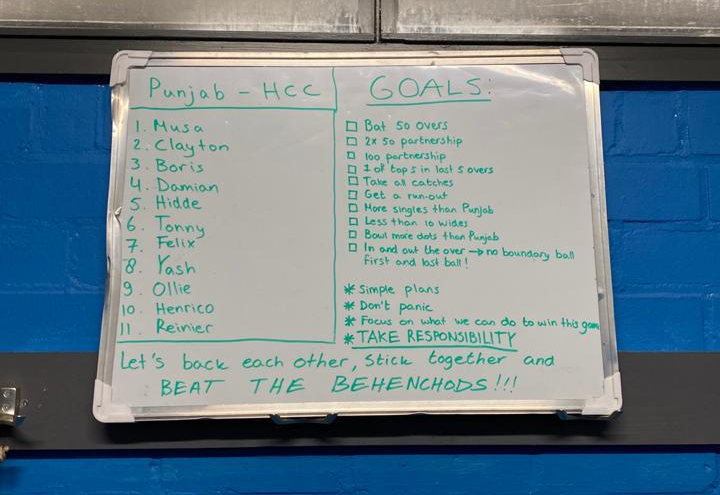 Punjab - HCC
1. Musa
2. Clayton
3. Boris
4. Damian
5. Hidde
6. Tonny
7. Felix
8. Yash
9. Ollie
10. Henrico
11. Reinier
GOALS:
Bat 50 overs
2x 50 partnership
100 partnership
1 of top 5 in last 5 overs
Take all catches
Get a run-out
More singles than Punjab
Less than 10 wides
Bowl more dots than Punjab
In and out the over → no boundary ball
First and last ball!
* Simple plans
* Don't panic
* Focus on what we can do to win this game
* TAKE RESPONSIBILITY
Let's back each other, Stick together and
BEAT THE BEHENCHODS!!!